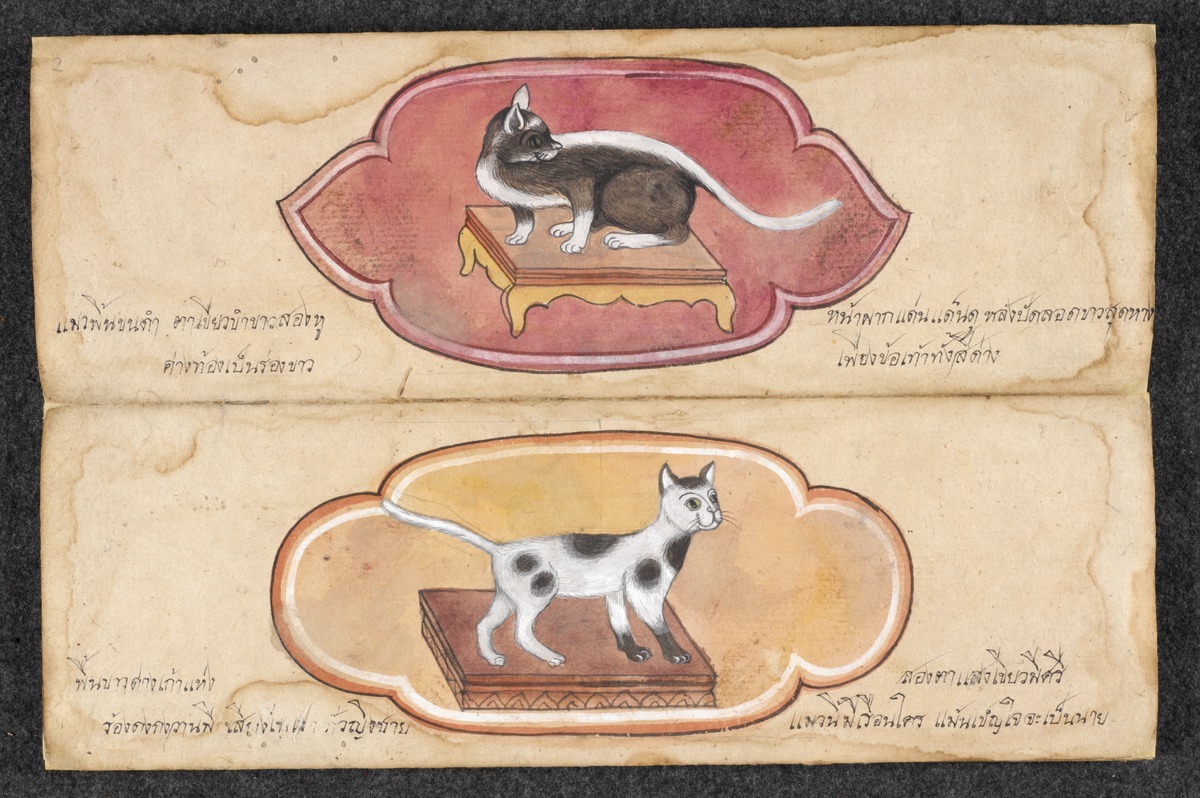 แมวพื้นขนดำ ตาเขียวขำขาวสองหู
หน้าผากแด่นแด้นดู หลังปัดลอดขาวสุดหาง
ค่างท้องเป็นร่องขาว
เพียงข้อเท้าทั้งสี่ด่าง
พื้นขาวด่างเก้าแห่ง
สองตาแสงเขียวมีศรี
ร้องดงกงวานมี เสียง ทั่วญิงชาย
แมวนี้มีเรือนใคร แม้นเขญใจจะเป็นนาย